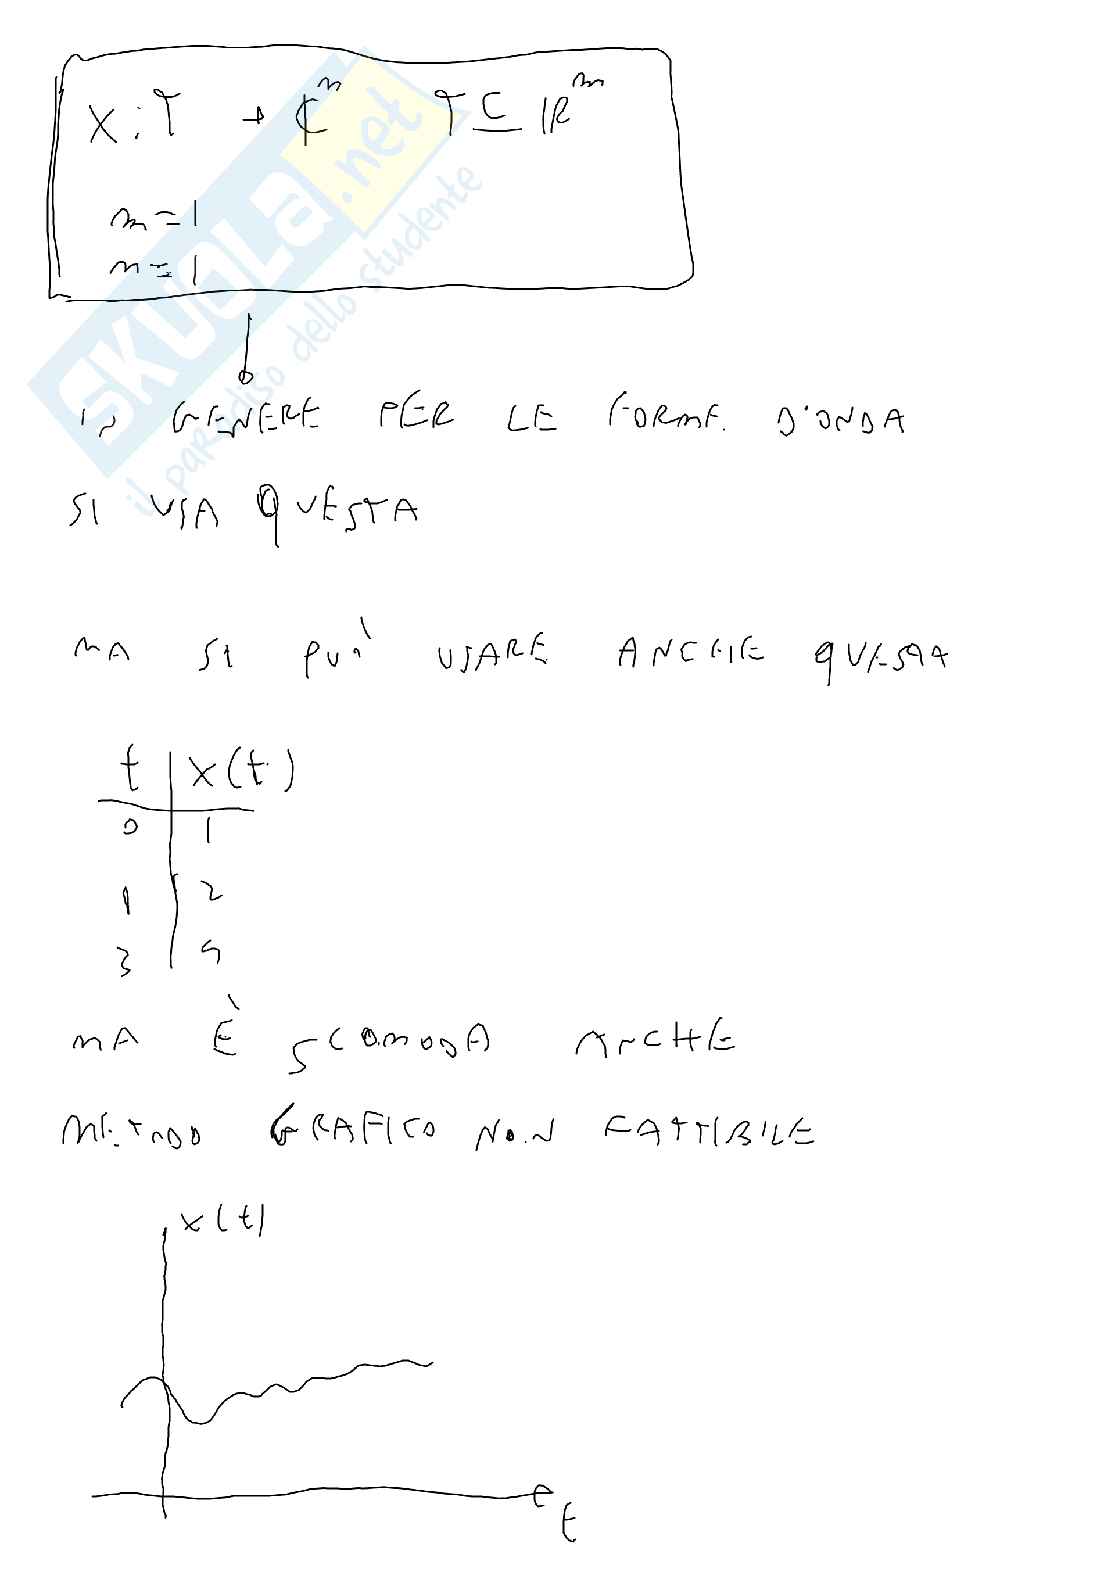 x : T → ℂⁿ T ⊆ ℝᵐ
m = 1
n = 1
IN GENERE PER LE FORME D'ONDA
SI USA QUESTA
MA SI PUÒ USARE ANCHE QUESTA
t | x(t)
0 | 1
1 | 2
3 | 4
MA È SCOMODA ANCHE
METODO GRAFICO NON FATTIBILE
x(t)
t
SKUOLA.net
il paradiso dello studente